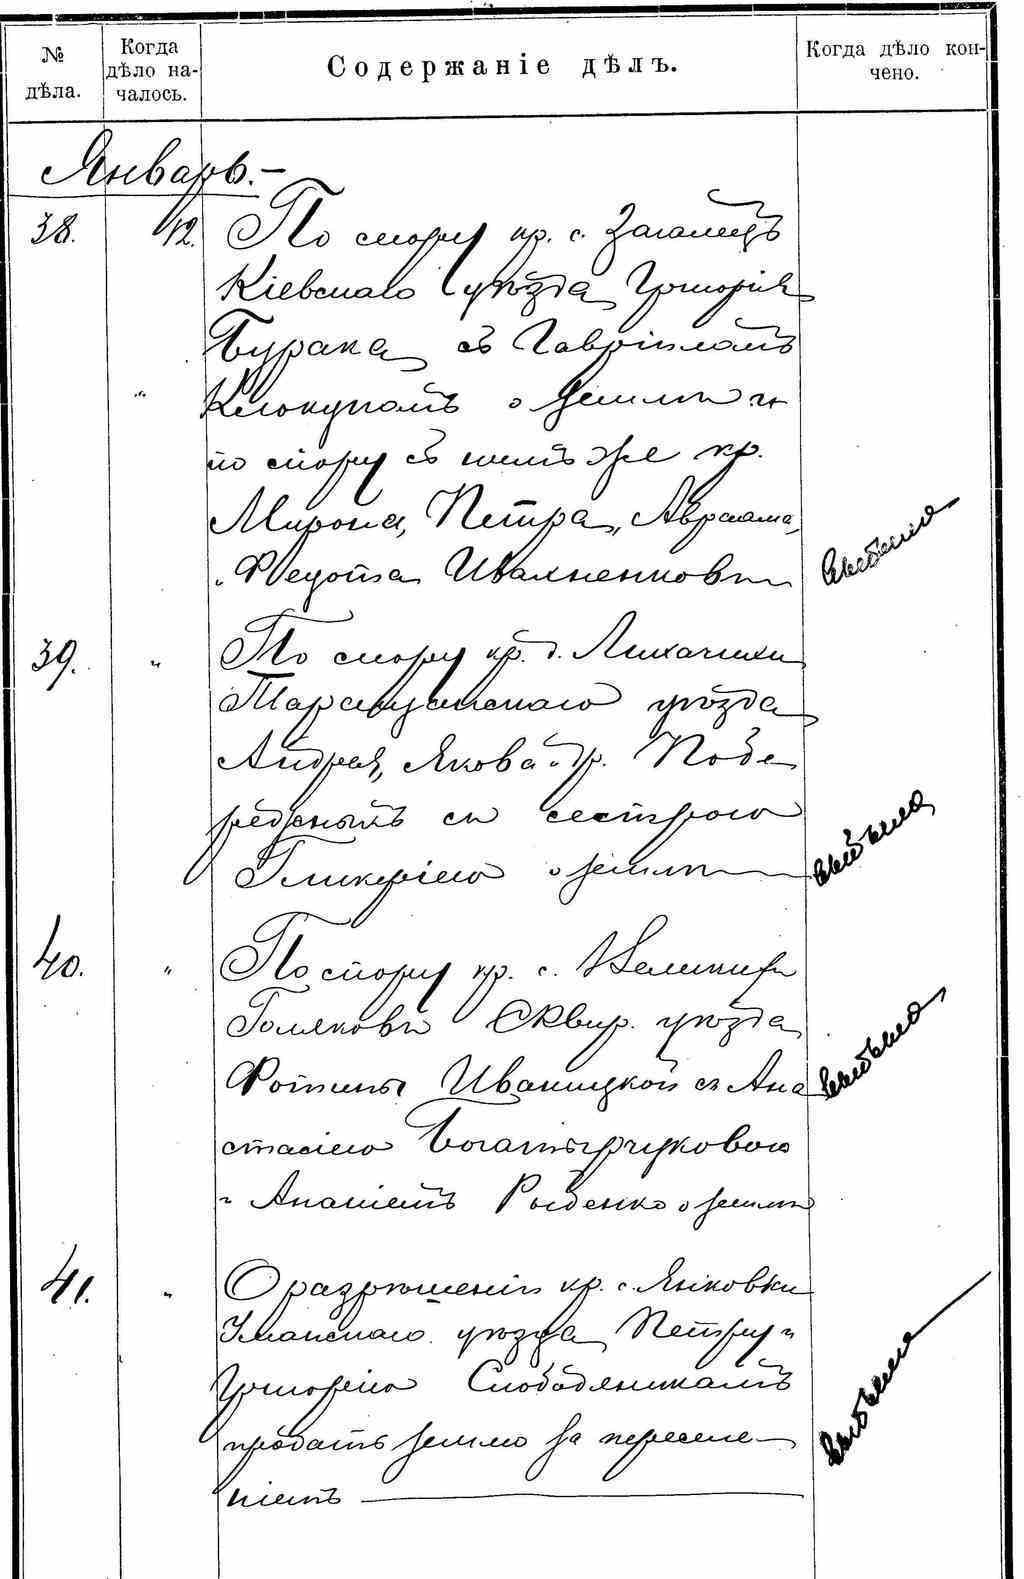 № дѣла.
Когда дѣло началось.
Содержаніе дѣлъ.
Когда дѣло кончено.
Январь.-
38. 12. По спору кр. с. Загалецъ
Кіевскаго уѣзда Григорія
Бурака съ Гавріиломъ
" Клокуномъ о землѣ и
по спору съ нимъ же кр.
Мирона, Петра, Авраама,
Федота Ивахненковы
39. " По спору кр. д. Лихачихи
Таращанскаго уѣзда
Андрея, Якова и др. Побе
режныхъ съ сестрою
Гликеріею о землѣ
40. " По спору кр. с.
Сквир. уѣзда
Фотины Иваницкой съ Ана
стасіею Богатырчуковою
и Ананіемъ Рыбенко о землѣ
41. " О разрѣшеніи кр. с. Янковки
Уманскаго уѣзда Петру и
Григорію Слободяникамъ
продать землю за переселе
ніемъ